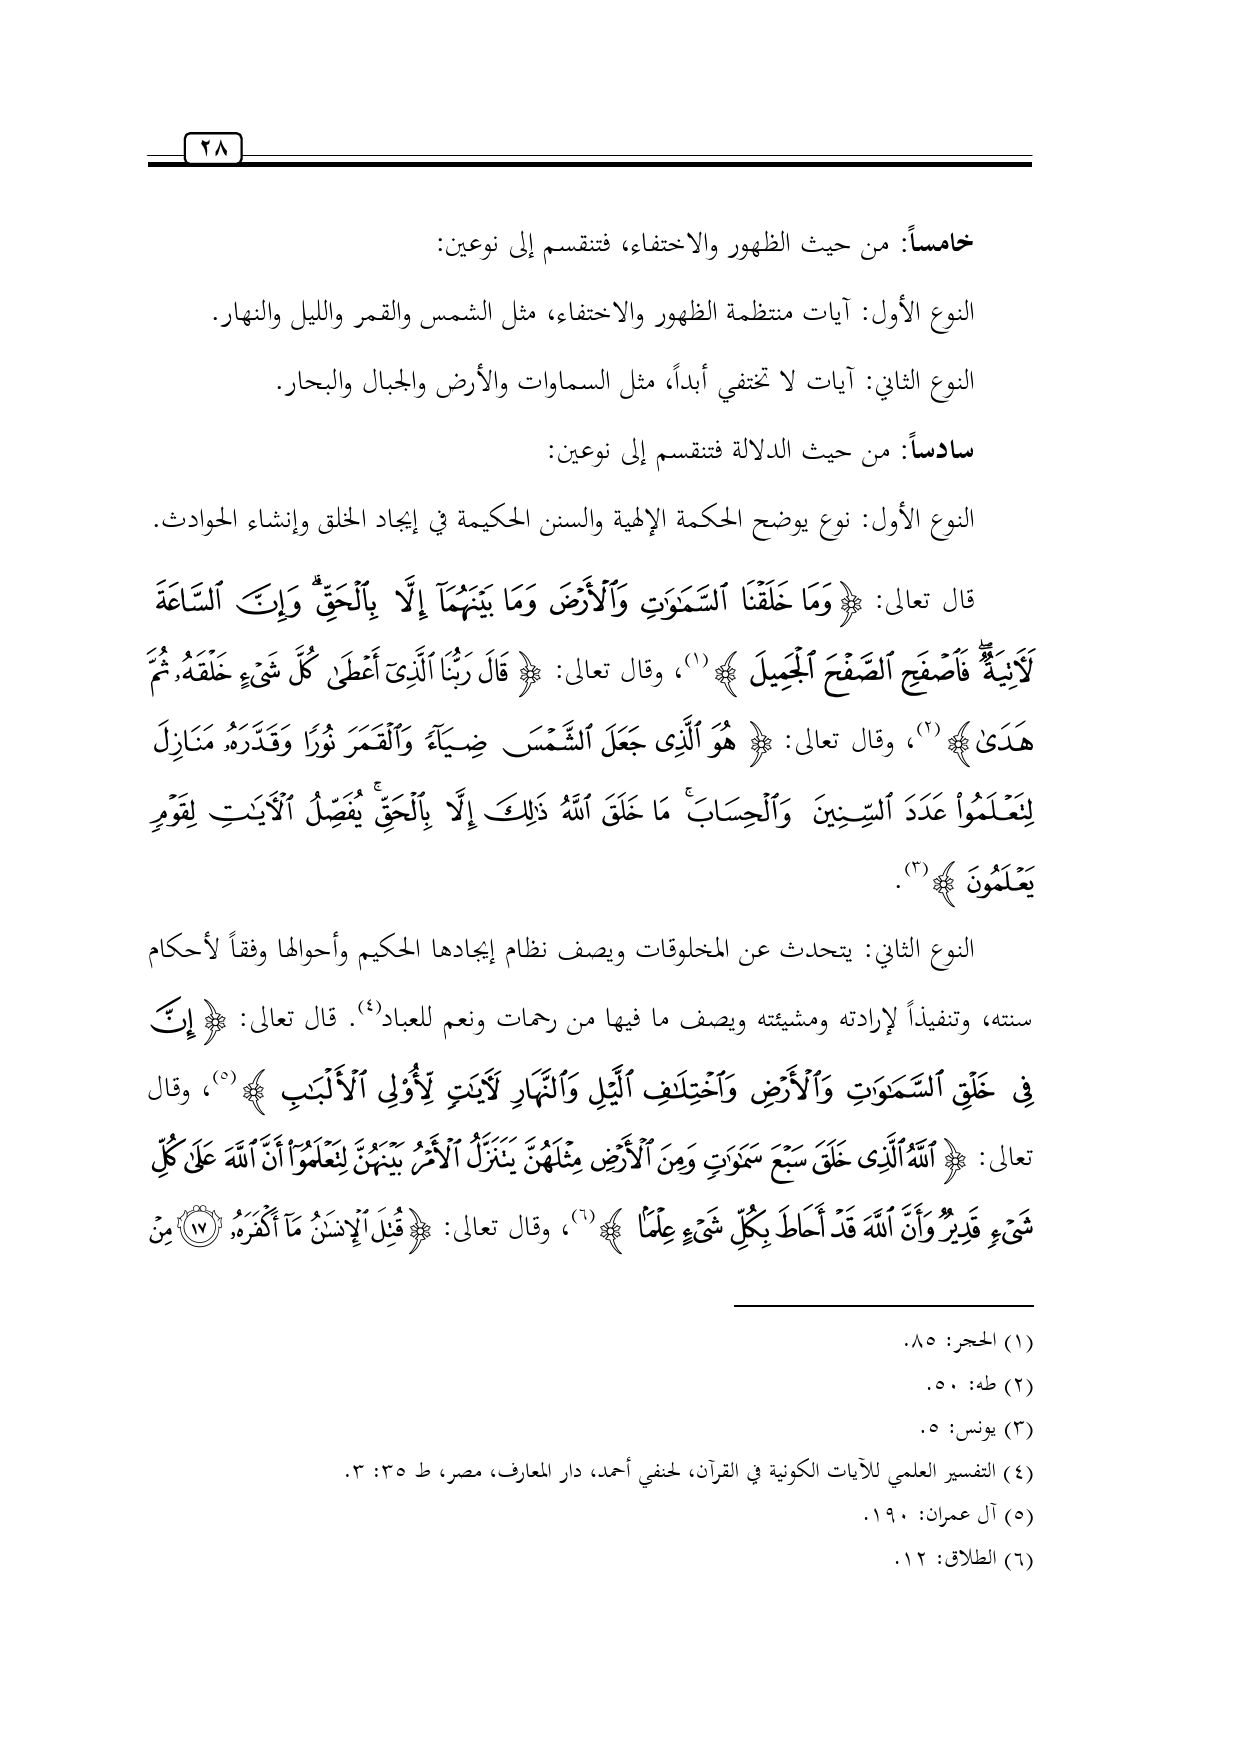 ٢٨
خامساً: من حيث الظهور والاختفاء، فتنقسم إلى نوعين:
النوع الأول: آيات منتظمة الظهور والاختفاء، مثل الشمس والقمر والليل والنهار.
النوع الثاني: آيات لا تختفي أبداً، مثل السماوات والأرض والجبال والبحار.
سادساً: من حيث الدلالة فتنقسم إلى نوعين:
النوع الأول: نوع يوضح الحكمة الإلهية والسنن الحكيمة في إيجاد الخلق وإنشاء الحوادث.
قال تعالى: ﴿ وَمَا خَلَقْنَا ٱلسَّمَٰوَٰتِ وَٱلْأَرْضَ وَمَا بَيْنَهُمَآ إِلَّا بِٱلْحَقِّ ۗ وَإِنَّ ٱلسَّاعَةَ
لَأٓتِيَةٌ ۖ فَٱصْفَحِ ٱلصَّفْحَ ٱلْجَمِيلَ ﴾(١)، وقال تعالى: ﴿ قَالَ رَبُّنَا ٱلَّذِىٓ أَعْطَىٰ كُلَّ شَىْءٍ خَلْقَهُۥ ثُمَّ
هَدَىٰ ﴾(٢)، وقال تعالى: ﴿ هُوَ ٱلَّذِى جَعَلَ ٱلشَّمْسَ ضِيَآءً وَٱلْقَمَرَ نُورًا وَقَدَّرَهُۥ مَنَازِلَ
لِتَعْلَمُوا۟ عَدَدَ ٱلسِّنِينَ وَٱلْحِسَابَ ۚ مَا خَلَقَ ٱللَّهُ ذَٰلِكَ إِلَّا بِٱلْحَقِّ ۚ يُفَصِّلُ ٱلْأَيَٰتِ لِقَوْمٍ
يَعْلَمُونَ ﴾(٣).
النوع الثاني: يتحدث عن المخلوقات ويصف نظام إيجادها الحكيم وأحوالها وفقاً لأحكام
سنته، وتنفيذاً لإرادته ومشيئته ويصف ما فيها من رحمات ونعم للعباد(٤). قال تعالى: ﴿ إِنَّ
فِى خَلْقِ ٱلسَّمَٰوَٰتِ وَٱلْأَرْضِ وَٱخْتِلَٰفِ ٱلَّيْلِ وَٱلنَّهَارِ لَأَيَٰتٍ لِّأُو۟لِى ٱلْأَلْبَٰبِ ﴾(٥)، وقال
تعالى: ﴿ ٱللَّهُ ٱلَّذِى خَلَقَ سَبْعَ سَمَٰوَٰتٍ وَمِنَ ٱلْأَرْضِ مِثْلَهُنَّ يَتَنَزَّلُ ٱلْأَمْرُ بَيْنَهُنَّ لِتَعْلَمُوٓا۟ أَنَّ ٱللَّهَ عَلَىٰ كُلِّ
شَىْءٍ قَدِيرٌ وَأَنَّ ٱللَّهَ قَدْ أَحَاطَ بِكُلِّ شَىْءٍ عِلْمًۢا ﴾(٦)، وقال تعالى: ﴿ قُتِلَ ٱلْإِنسَٰنُ مَآ أَكْفَرَهُۥ ١٧ مِنْ
(١) الحجر: ٨٥.
(٢) طه: ٥٠.
(٣) يونس: ٥.
(٤) التفسير العلمي للآيات الكونية في القرآن، لحنفي أحمد، دار المعارف، مصر، ط ٣٥: ٣.
(٥) آل عمران: ١٩٠.
(٦) الطلاق: ١٢.